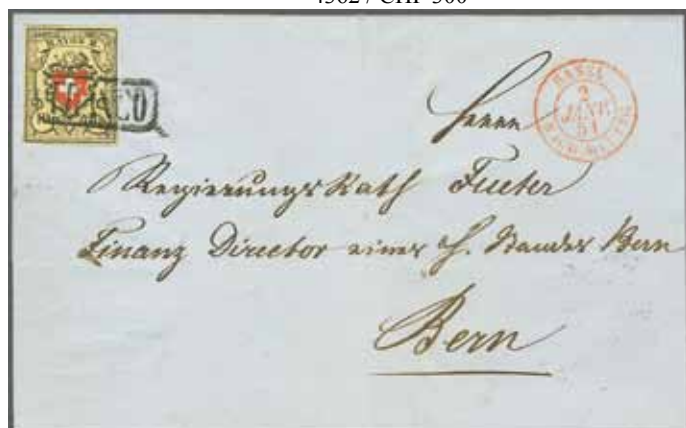 RAYON II
BASEL
2
JANR
51
NACHMITTAG
Herrn
Regierungs Rath Fueter
Finanz Director eines h. Standes Bern
Bern